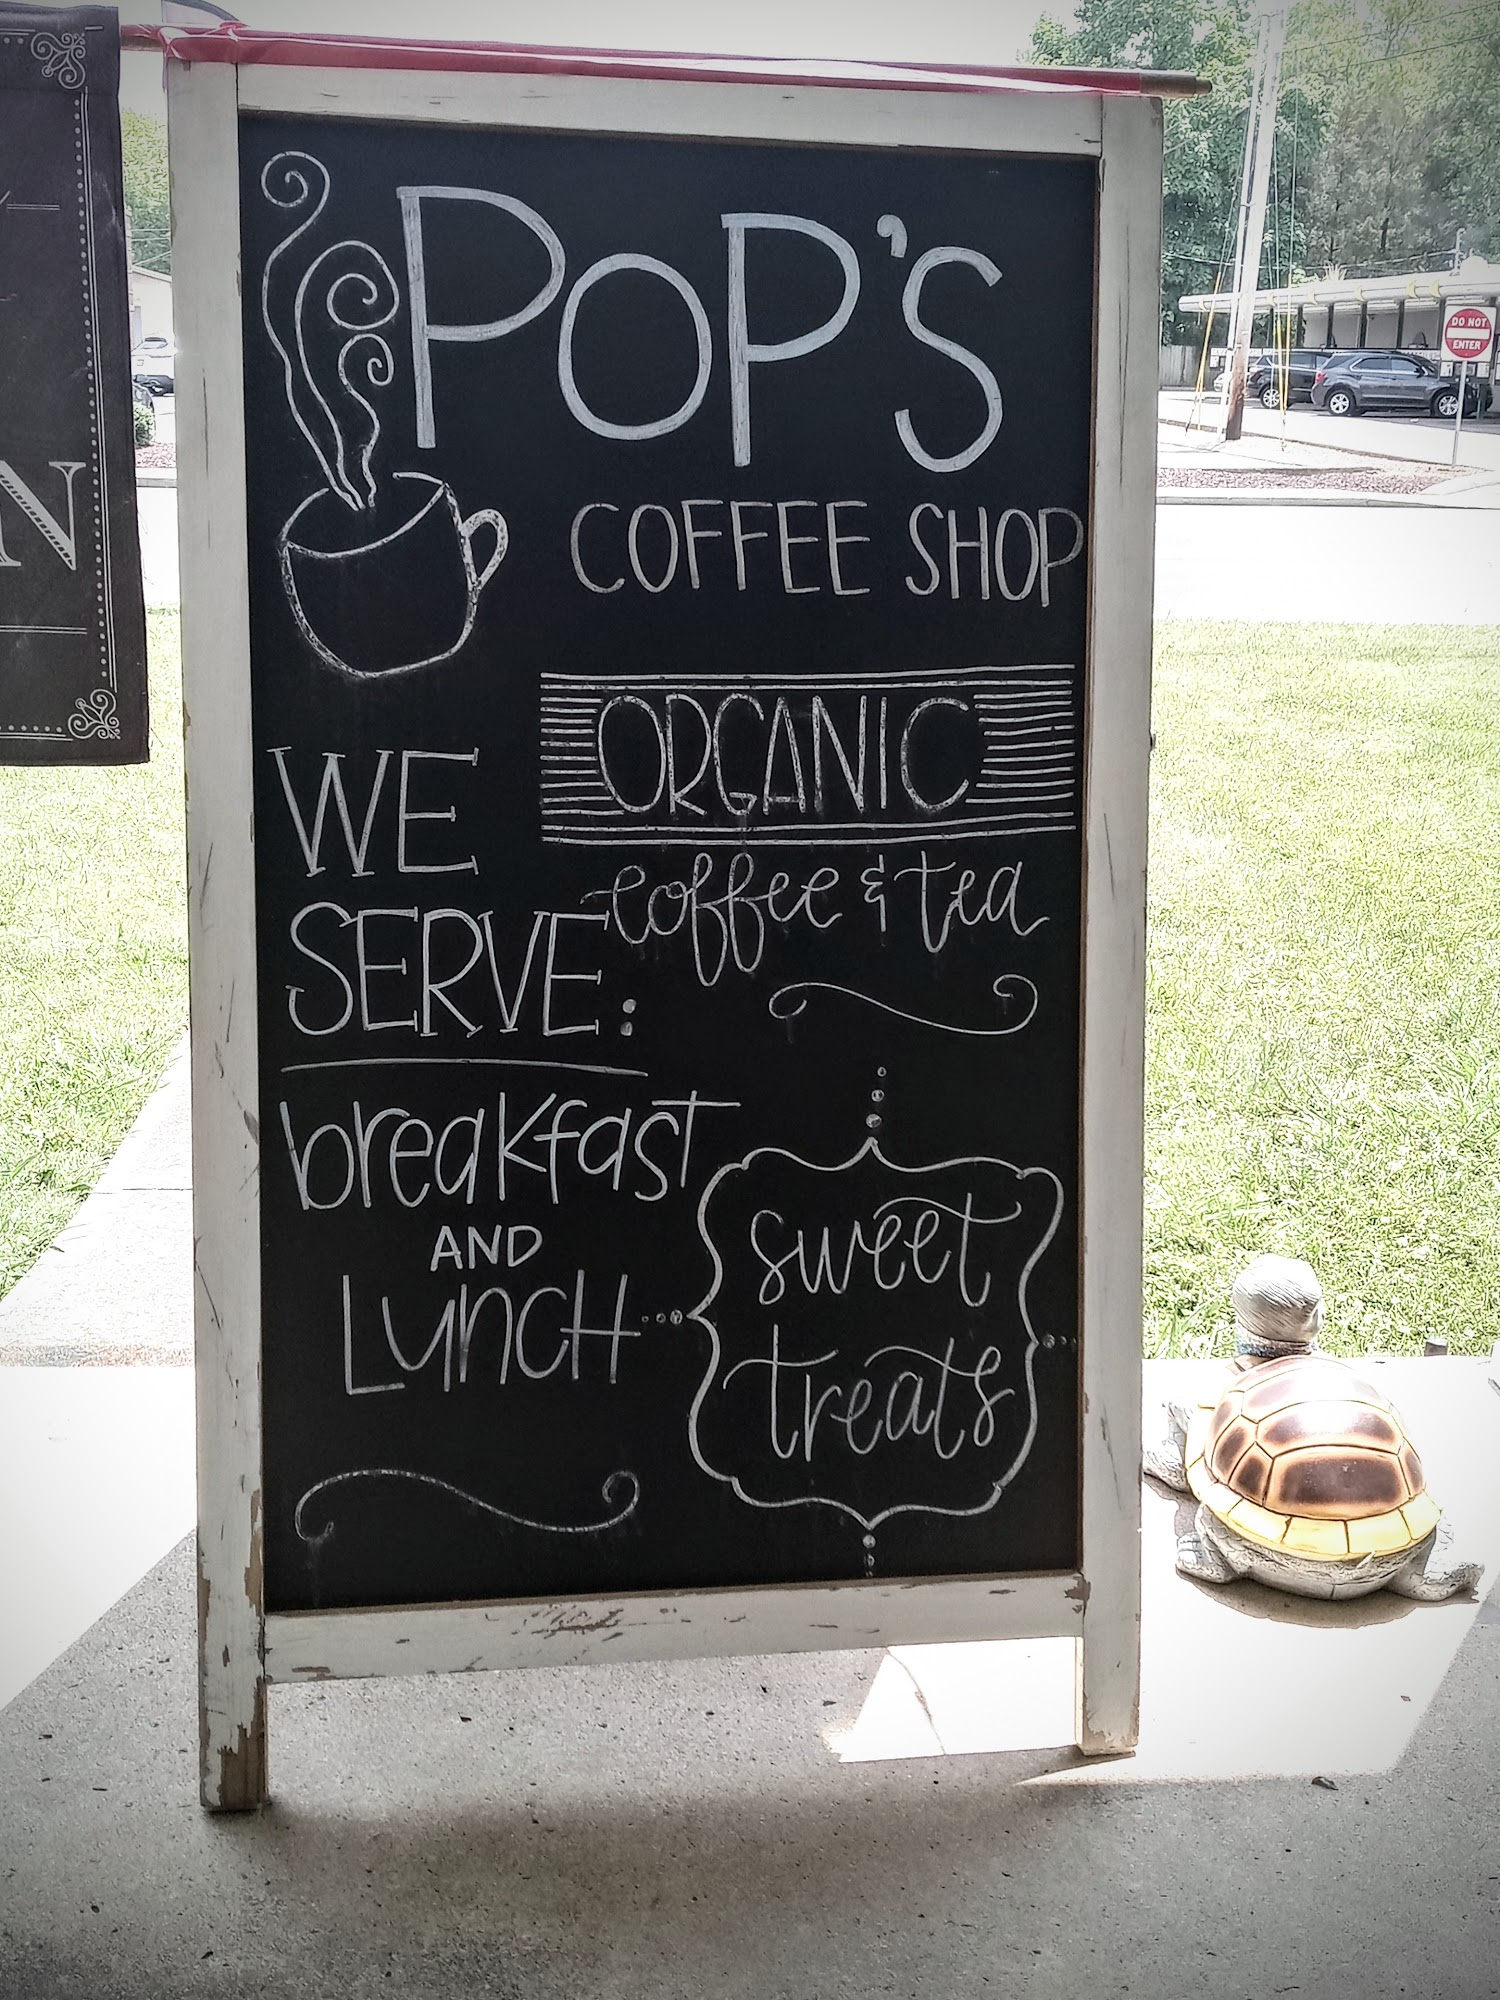 POP'S
COFFEE SHOP
ORGANIC
coffee & tea
WE
SERVE:
breakfast
AND
LUNCH
sweet
treats
DO NOT
ENTER
N